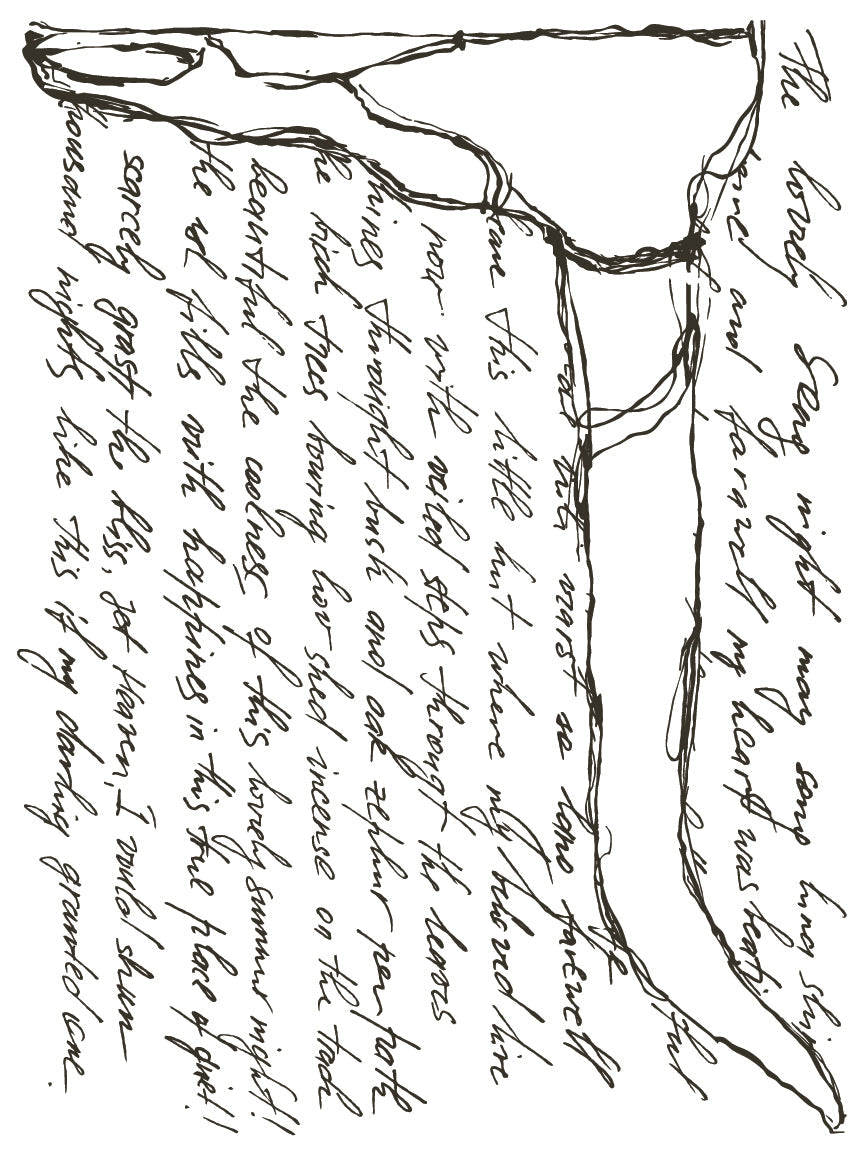 The lovely Song night may song
and farwell my heart was beati
but
but worst so long farewell
this little hut where my bloved live
now with veiled steps throught the leavs
things throught bush and oak zephur per path
the birch trees bowing low shed incense on the track
beautiful the coolness of this lovely summur night!
the sol fills with happines in this true place of quiet!
scarcely grasst the bliss, yet Heaven, I would shun
thousand nights like this if my darling granted one.